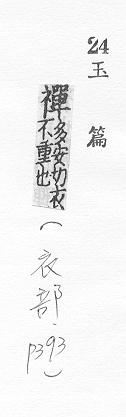 24
玉篇
襌多安切衣
不重也
(衣部.
P393)